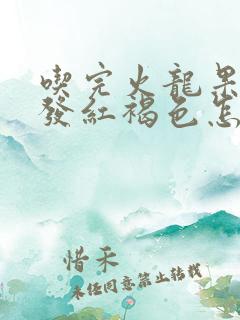 喫完火龍果
發紅褐色怎
惜禾
未經同意禁止轉載